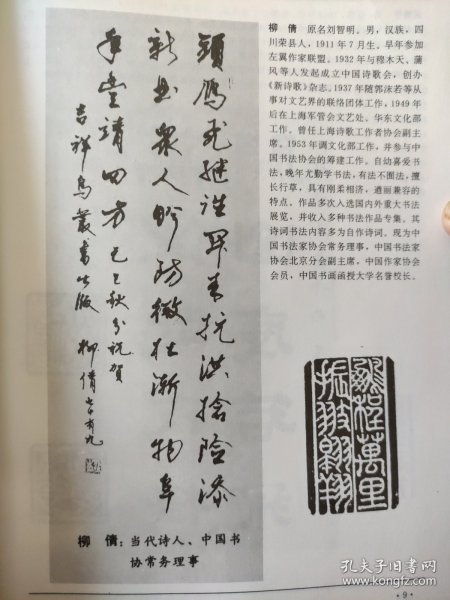 柳倩 原名刘智明。男，汉族，四
川荣县人，1911年7月生。早年参加
左翼作家联盟。1932年与穆木天、蒲
风等人发起成立中国诗歌会，创办
《新诗歌》杂志。1937年随郭沫若等从
事对文艺界的联络团体工作，1949年
后在上海军管会文艺处、华东文化部
工作。曾任上海诗歌工作者协会副主
席。1953年调文化部工作，并参与中
国书法协会的筹建工作。自幼喜爱书
法，晚年尤勤学书法，有法不囿法，擅
长行草，具有刚柔相济，遒丽兼容的
特点。作品多次入选国内外重大书法
展览，并收入多种书法作品专集。其
诗词书法内容多为自作诗词。现为中
国书法家协会常务理事，中国书法家
协会北京分会副主席，中国作家协会
会员，中国书画函授大学名誉校长。
新 众人 防微杜渐物阜
年丰靖四方 己巳秋分祝贺
吉祥鸟丛书出版 柳倩
鹏程万里
振翅翱翔
柳倩：当代诗人、中国书
协常务理事
·9·
孔夫子旧书网
www.kongfz.com